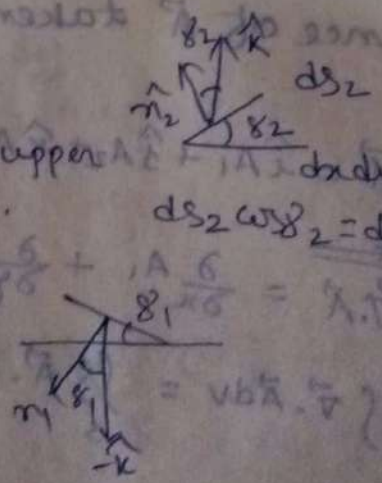 γ₂ k̂
n̂₂ ds₂
γ₂
upper dxd
ds₂ cosγ₂ = d
γ₁
n₁ γ₁
-k̂